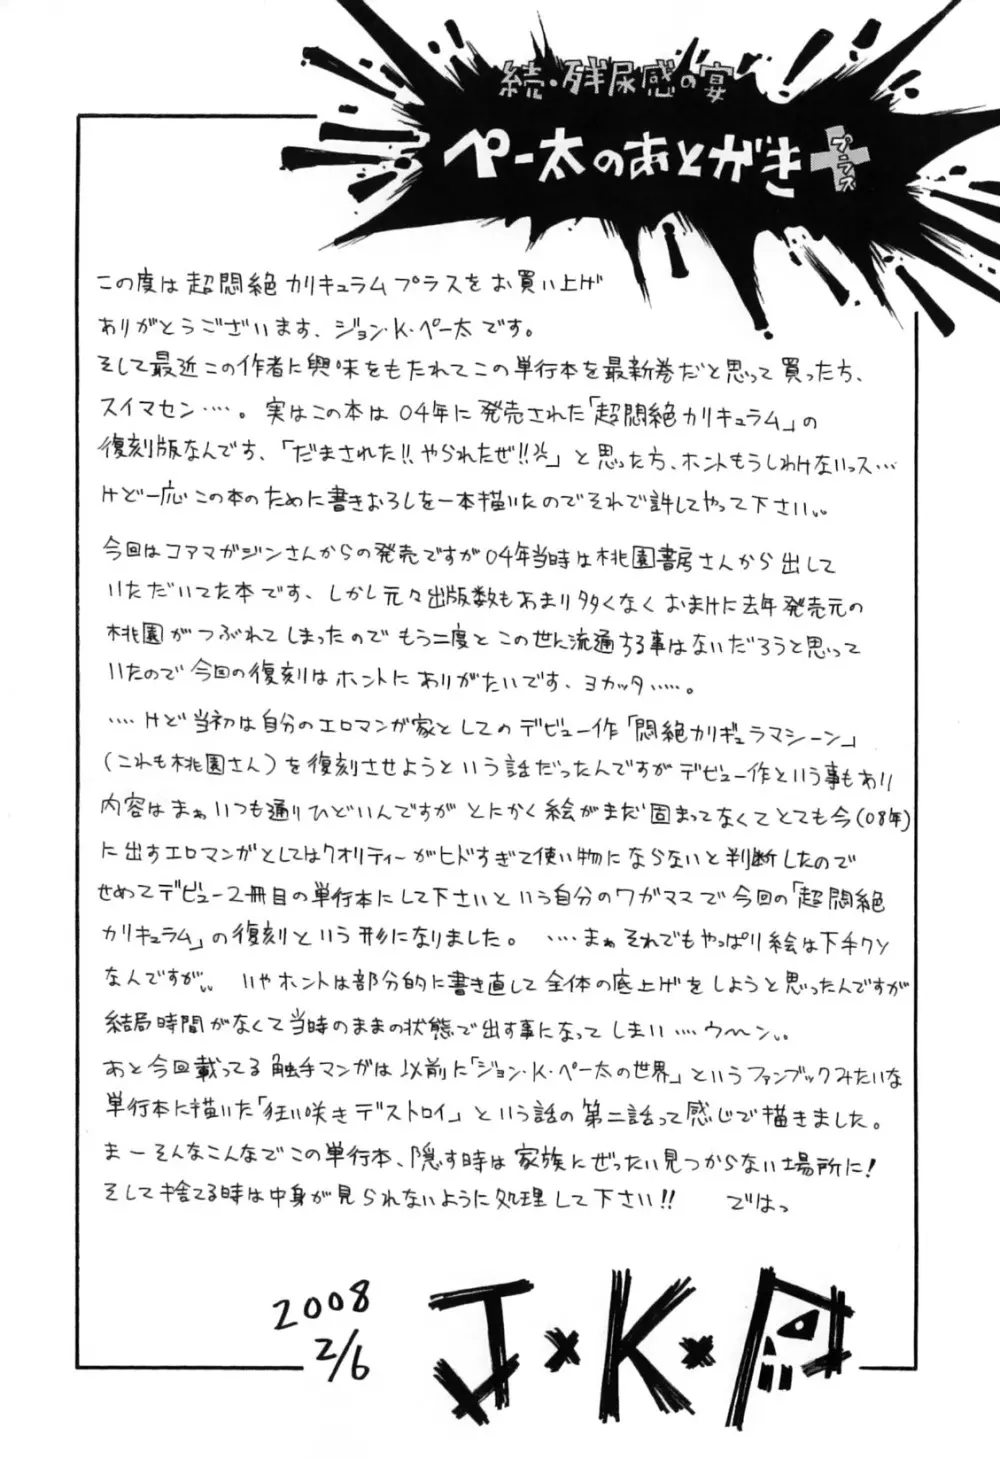 続・残尿感の宴
ペー太のあとがき
プラス
この度は超悶絶カリキュラムプラスをお買い上げ
ありがとうございます、ジョン・K・ペー太です。
そして最近この作者に興味をもたれてこの単行本を最新巻だと思って買ったち、
スイマセン‥‥。実はこの本は04年に発売された「超悶絶カリキュラム」の
復刻版なんです、「だまされた!!やられたぜ!!」と思った方、ホントもうしわけないっス…
けど一応この本のために書きおろしを一本描いたのでそれで許してやって下さい、、
今回はコアマガジンさんからの発売ですが04年当時は桃園書房さんから出して
いただいてた本です、しかし元々出版数もあまり多くなくおまけに去年発売元の
桃園がつぶれてしまったのでもう二度とこの世に流通する事はないだろうと思って
いたので今回の復刻はホントにありがたいです、ヨカッタ‥‥‥。
‥‥けど当初は自分のエロマンガ家としてのデビュー作「悶絶カリギュラマシーン」
(これも桃園さん)を復刻させようという話だったんですがデビュー作という事もあり
内容はまぁいつも通りひどいんですがとにかく絵がまだ固まってなくてとても今(08年)
に出すエロマンガとしてはクオリティーがヒドすぎて使い物にならないと判断したので
せめてデビュー2冊目の単行本にして下さいという自分のワガママで今回の「超悶絶
カリキュラム」の復刻という形になりました。‥‥まぁそれでもやっぱり絵は下手クソ
なんですが、、いやホントは部分的に書き直して全体の底上げをしようと思ったんですが
結局時間がなくて当時のままの状態で出す事になってしまい‥‥ウ〜ン、、
あと今回載ってる触手マンガは以前に「ジョン・K・ペー太の世界」というファンブックみたいな
単行本に描いた「狂い咲きデストロイ」という話の第二話って感じで描きました。
まーそんなこんなでこの単行本、隠す時は家族にぜったい見つからない場所に!
そして捨てる時は中身が見られないように処理して下さい!! ではっ
2008
2/6
J×K×P